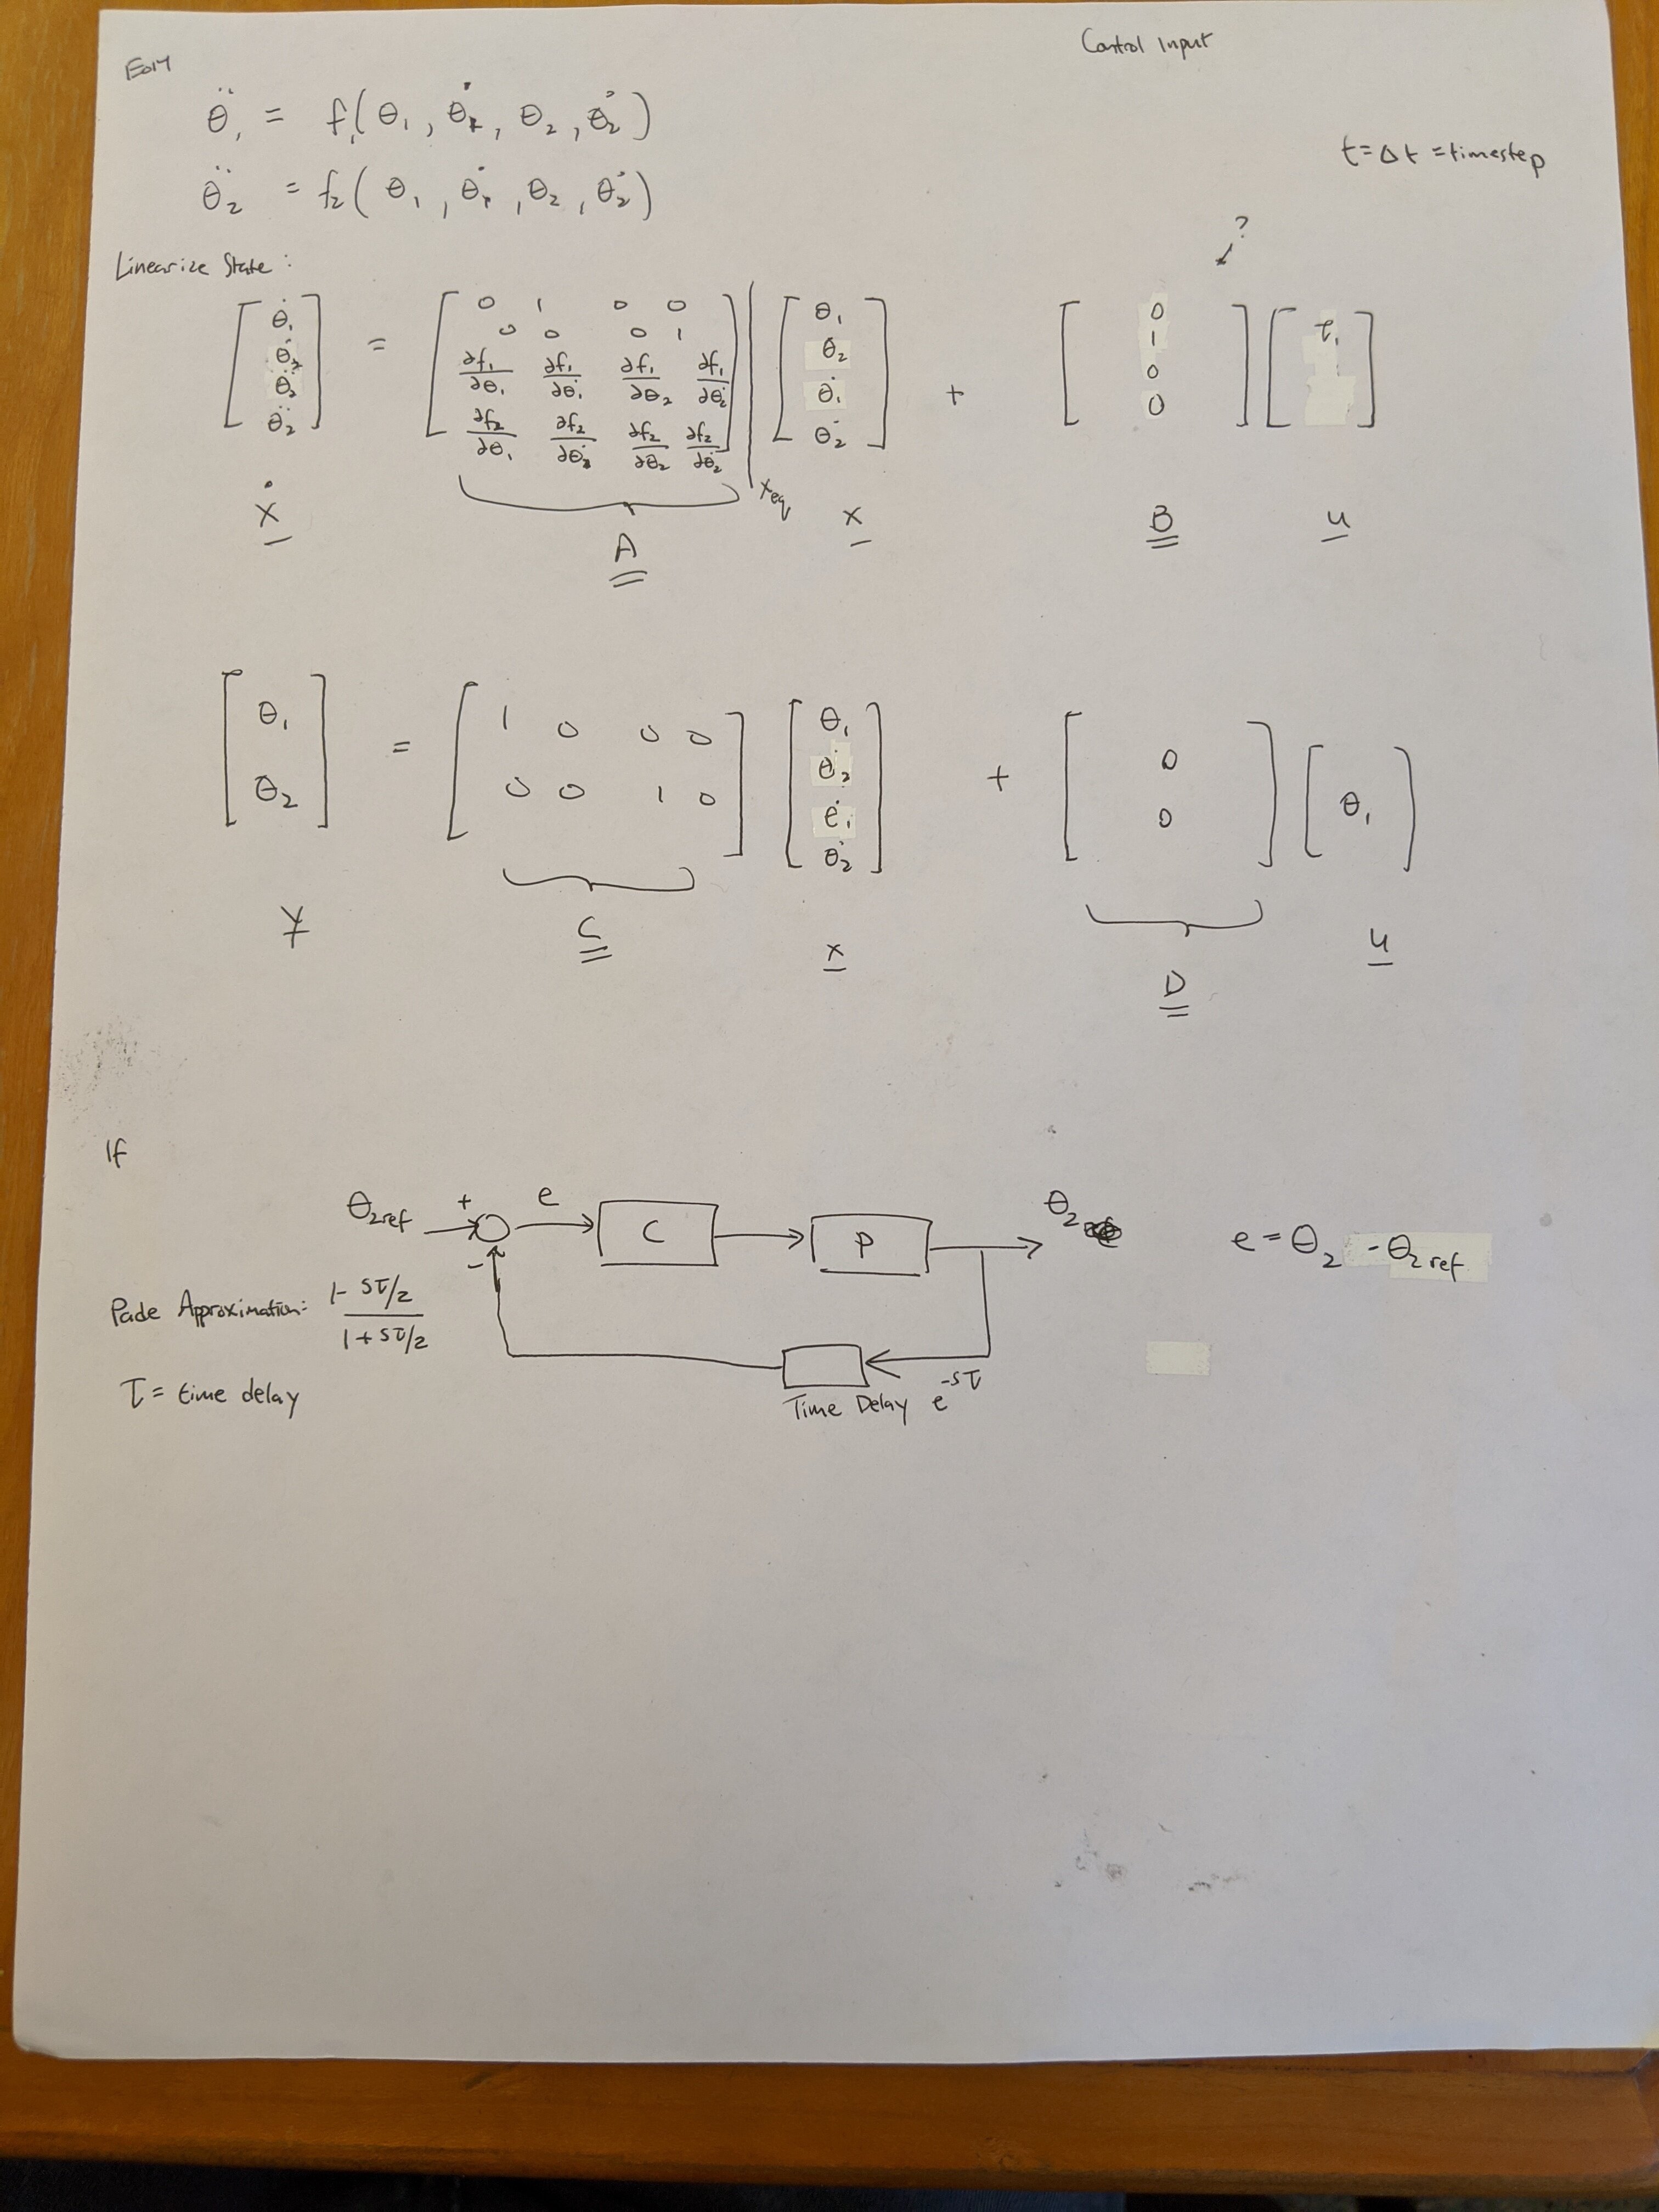 Control Input
EoM
θ̈₁ = f₁(θ₁, θ̇₁, θ₂, θ̇₂)
t = Δt = timestep
θ̈₂ = f₂(θ₁, θ̇₁, θ₂, θ̇₂)
?
Linearize State:
[θ̇₁ θ̇₂ θ̈₂ θ̈₂] = [0 1 0 0; 0 0 0 1; ∂f₁/∂θ₁ ∂f₁/∂θ̇₁ ∂f₁/∂θ₂ ∂f₁/∂θ̇₂; ∂f₂/∂θ₁ ∂f₂/∂θ̇₂ ∂f₂/∂θ₂ ∂f₂/∂θ̇₂] | [θ₁ θ₂ θ̇₁ θ̇₂] + [0 1 0 0] [τ₁]
xeq
ẋ A x B u
[θ₁ θ₂] = [1 0 0 0; 0 0 1 0] [θ₁ θ̇₂ θ̇₁ θ̇₂] + [0 0] [θ₁]
y C x D u
If
θ₂ref + e C P θ₂
-
e = θ₂ - θ₂ref
Pade Approximation: 1 - sτ/2
1 + sτ/2
τ = time delay
Time Delay e^-sτ